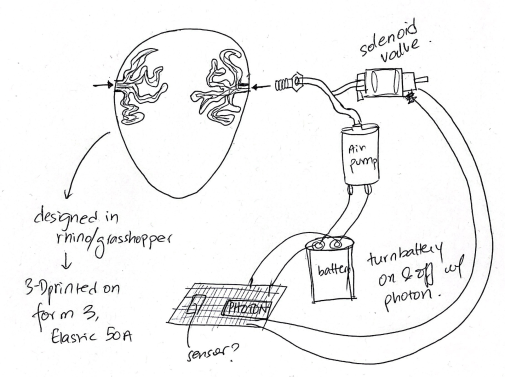 solenoid
valve.
Air
pump
battery
turn battery
on & off w/
photon.
PHOTON
sensor?
designed in
rhino/grasshopper
3-Dprinted on
form 3,
Elastic 50A